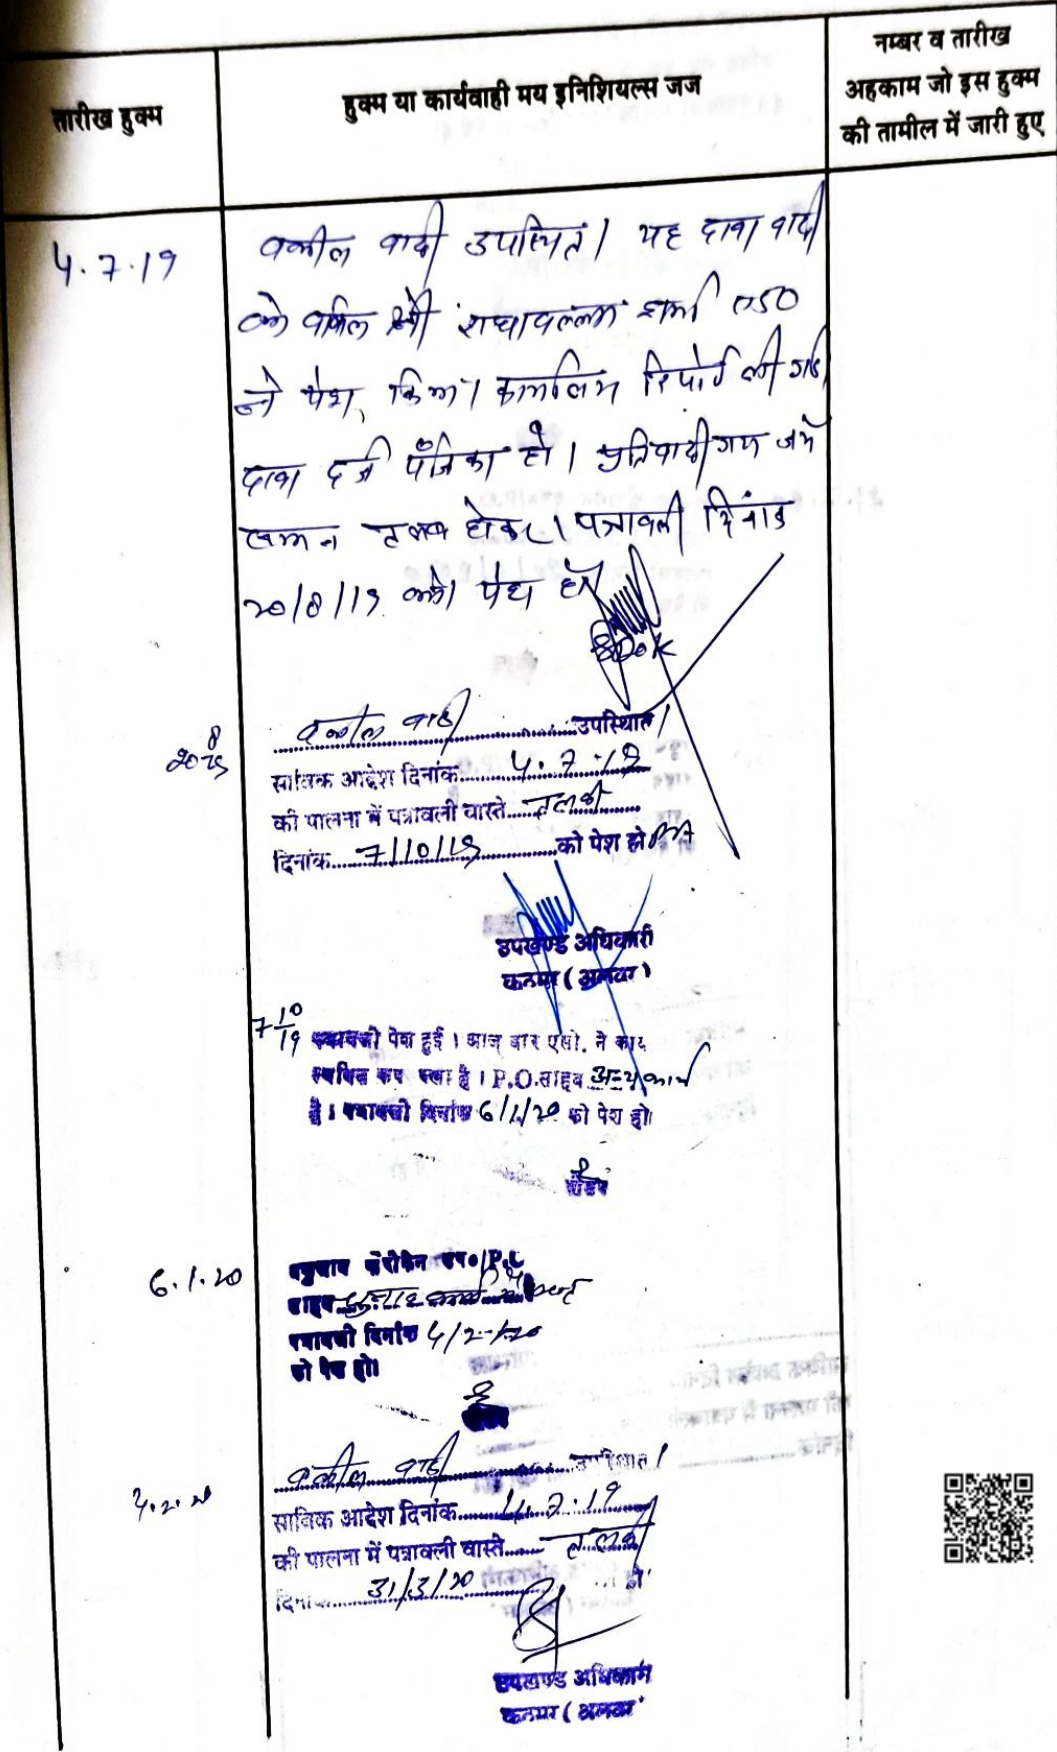 तारीख हुक्म
हुक्म या कार्यवाही मय इनिशियल्स जज
नम्बर व तारीख
अहकाम जो इस हुक्म
की तामील में जारी हुए
4.7.19
वकील वादी उपस्थित। यह दावा वादी
के वकिल श्री राधावल्लभ शर्मा एड0
ने पेश किया। रिपोर्ट ली गई
दावा दर्ज पंजिका हो। प्रतिवादीगण जर्ये
तलब होकर। पत्रावली दिनांक
20/8/19 को पेश हो
वकील वादी उपस्थित।
20 8/19
साबिक आदेश दिनांक 4.7.19
की पालना में पत्रावली वास्ते तलबी
दिनांक 7/10/19 को पेश हो
उपखण्ड अधिकारी
कठूमर (अलवर)
7 10/19 पत्रावली पेश हुई। आज बार एसो. ने कार्य
स्थगित कर रखा है। P.O. साहब अन्य कार्य
है। पत्रावली दिनांक 6/1/20 को पेश हो।
रीडर
6.1.20
साहब चुनाव कार्य में
पत्रावली दिनांक 4/2/20
को पेश हो।
वकील वादी उपस्थित।
4.2.20
साबिक आदेश दिनांक 4.7.19
की पालना में पत्रावली वास्ते तलबी
दिनांक 31/3/20 हो
उपखण्ड अधिकारी
कठूमर (अलवर